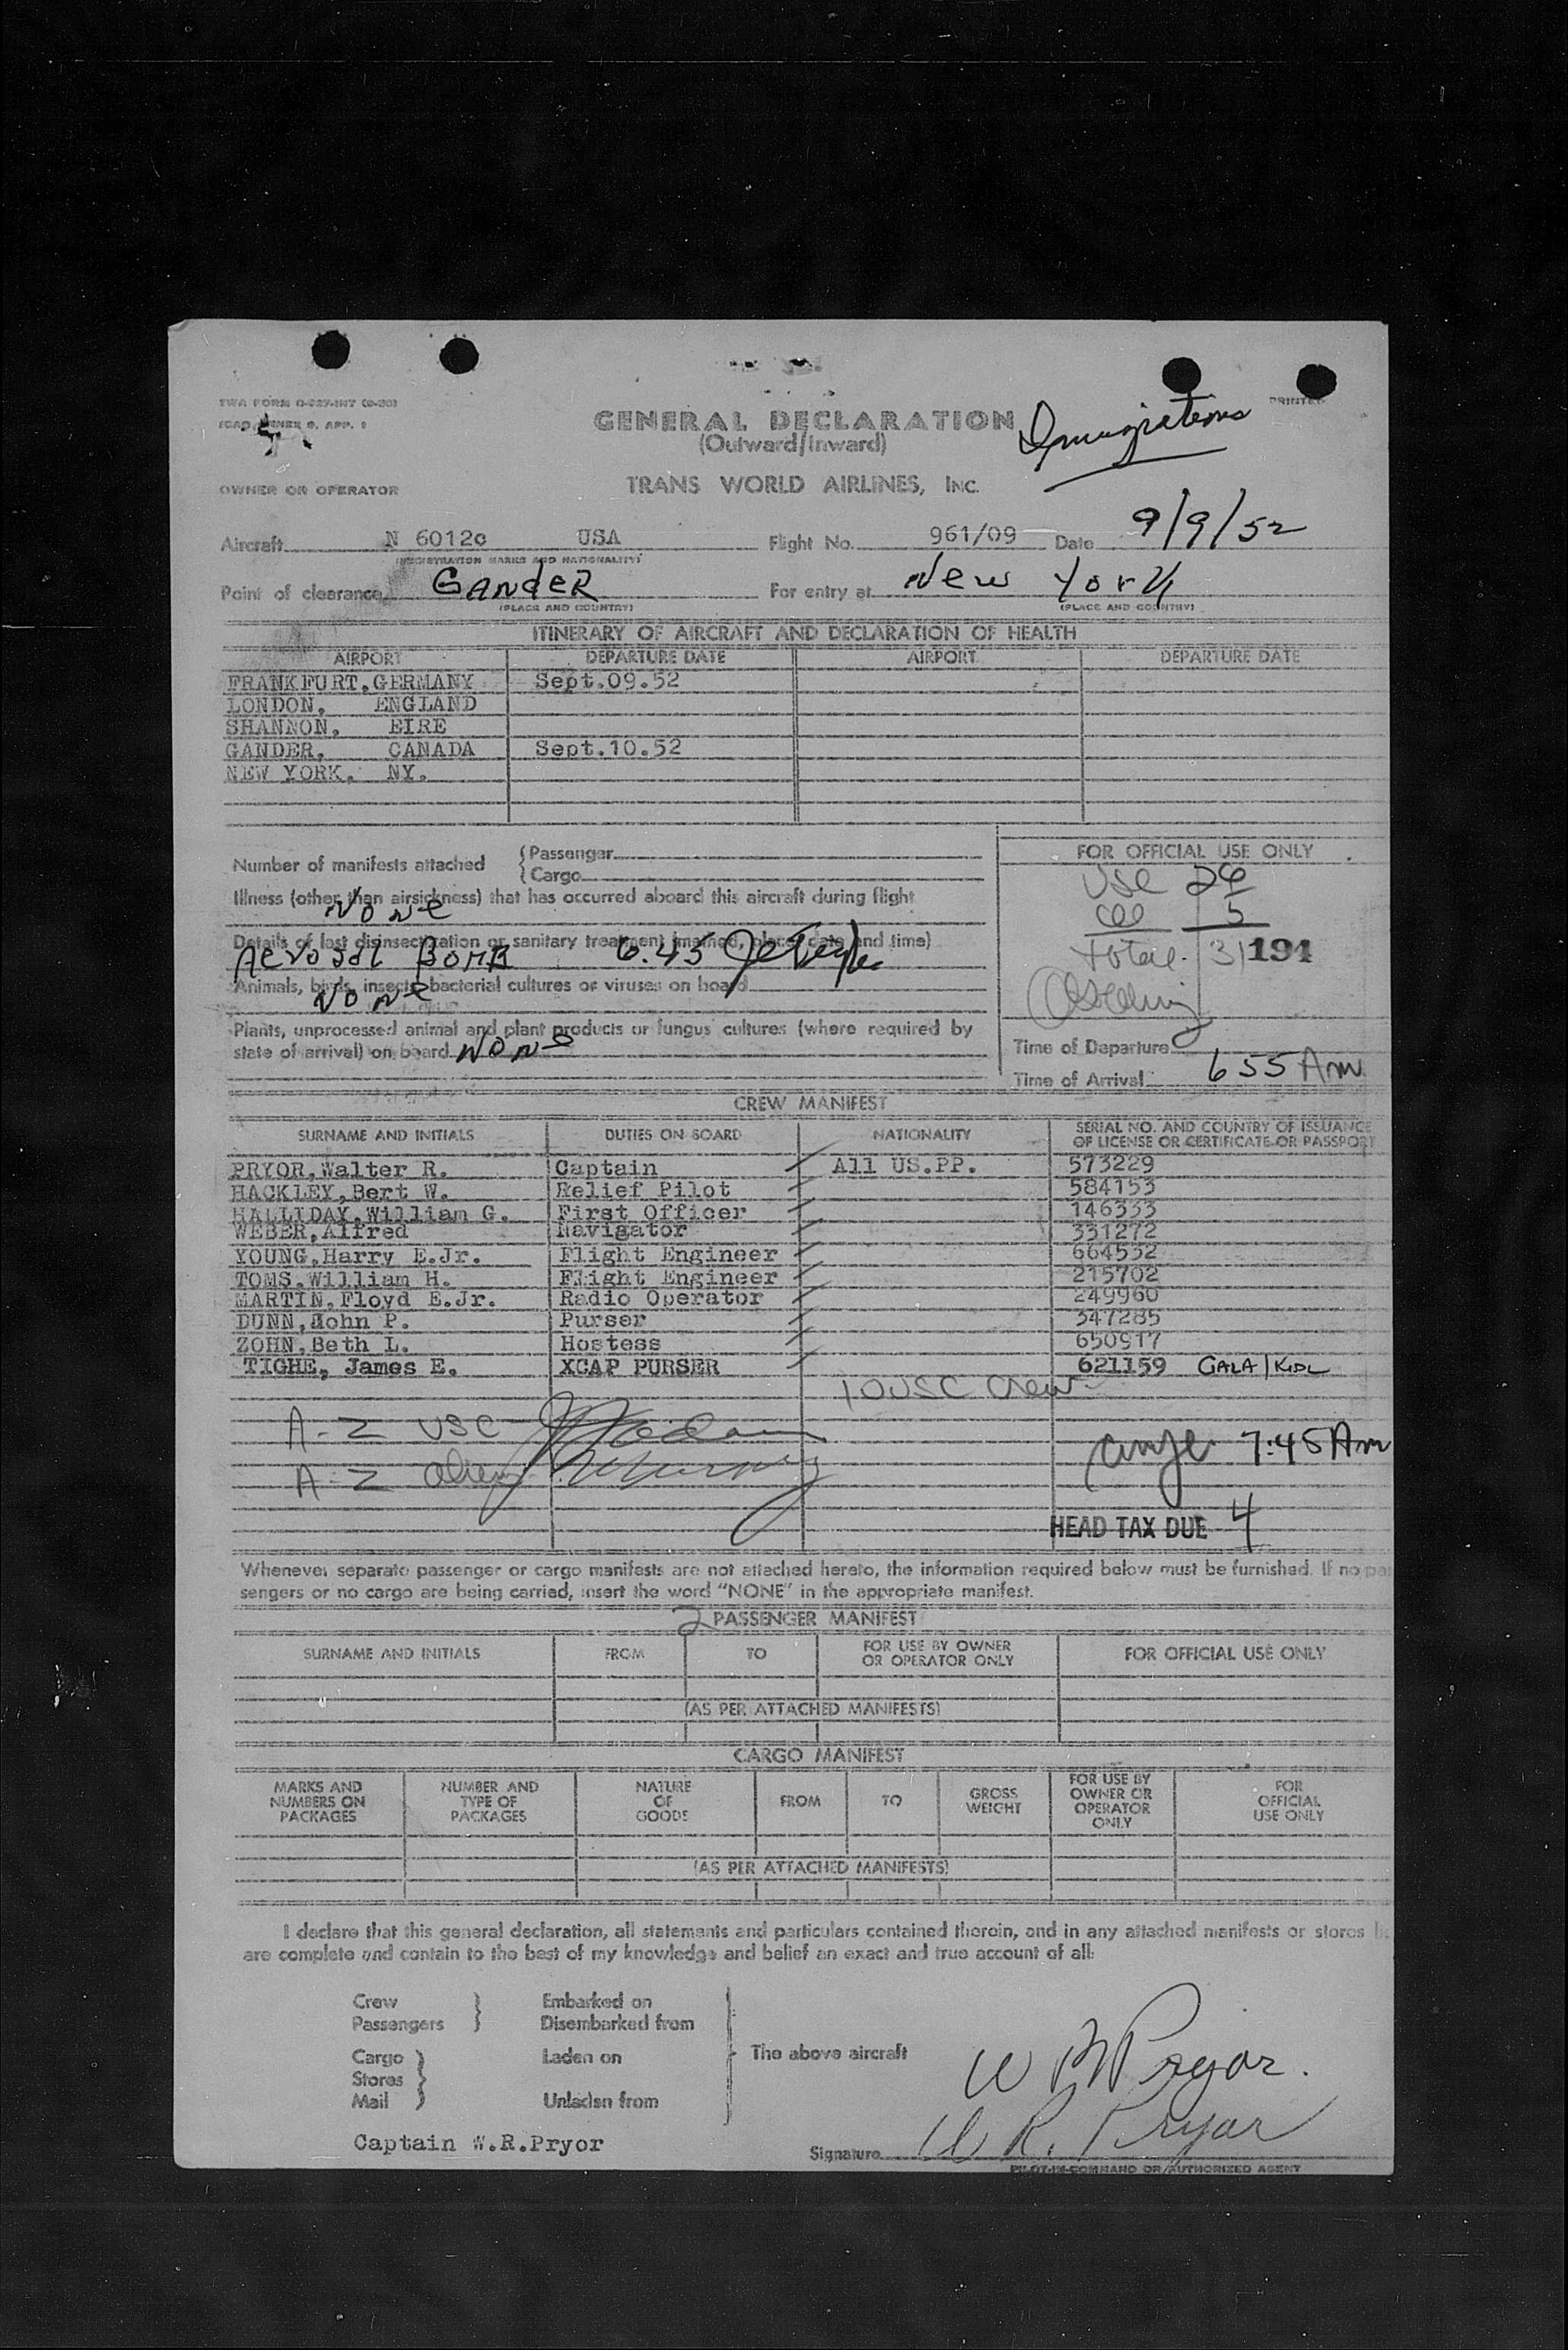 GENERAL DECLARATION
Immigrations
(Outward/Inward)
OWNER OR OPERATOR TRANS WORLD AIRLINES, INC.
Aircraft N 6012c USA Flight No. 961/09 Date 9/9/52
(REGISTRATION MARKS AND NATIONALITY)
Point of clearance GANdeR For entry at New York
(PLACE AND COUNTRY) (PLACE AND COUNTRY)
ITINERARY OF AIRCRAFT AND DECLARATION OF HEALTH
AIRPORT DEPARTURE DATE AIRPORT DEPARTURE DATE
FRANKFURT,GERMANY Sept.09.52
LONDON, ENGLAND
SHANNON, EIRE
GANDER, CANADA Sept.10.52
NEW YORK, NY.
Number of manifests attached { Passenger
{ Cargo
Illness (other than airsickness) that has occurred aboard this aircraft during flight
None
Details of last disinsectization or sanitary treatment (method, place, date and time)
Aerosol BOMB 6.45
Animals, birds, insects, bacterial cultures or viruses on board
None
Plants, unprocessed animal and plant products or fungus cultures (where required by
state of arrival) on board None
FOR OFFICIAL USE ONLY
USC 26
5
Total 31 194
Time of Departure
Time of Arrival 6 55 Am
CREW MANIFEST
SURNAME AND INITIALS DUTIES ON BOARD NATIONALITY SERIAL NO. AND COUNTRY OF ISSUANCE
OF LICENSE OR CERTIFICATE OR PASSPORT
PRYOR,Walter R. Captain All US.PP. 573229
HACKLEY,Bert W. Relief Pilot 584153
HALLIDAY,William G. First Officer 146333
WEBER,Alfred Navigator 331272
YOUNG,Harry E.Jr. Flight Engineer 664532
TOMS,William H. Flight Engineer 215702
MARTIN,Floyd E.Jr. Radio Operator 249960
DUNN,John P. Purser 347285
ZOHN,Beth L. Hostess 650917
TIGHE, James E. XCAP PURSER 621159 GALA/KIDL
10 USC Crew
A-Z USC
A-Z alien
7:45 Am
HEAD TAX DUE 4
Whenever separate passenger or cargo manifests are not attached hereto, the information required below must be furnished. If no
sengers or no cargo are being carried, insert the word "NONE" in the appropriate manifest.
2 PASSENGER MANIFEST
SURNAME AND INITIALS FROM TO FOR USE BY OWNER OR OPERATOR ONLY FOR OFFICIAL USE ONLY
(AS PER ATTACHED MANIFESTS)
CARGO MANIFEST
MARKS AND NUMBERS ON PACKAGES NUMBER AND TYPE OF PACKAGES NATURE OF GOODS FROM TO GROSS WEIGHT FOR USE BY OWNER OR OPERATOR ONLY FOR OFFICIAL USE ONLY
(AS PER ATTACHED MANIFESTS)
I declare that this general declaration, all statements and particulars contained therein, and in any attached manifests or stores
are complete and contain to the best of my knowledge and belief an exact and true account of all:
Crew Embarked on
Passengers } Disembarked from
Cargo Laden on The above aircraft
Stores
Mail } Unladen from
W R Pryor.
Captain W.R.Pryor Signature W R. Pryor
PILOT-IN-COMMAND OR AUTHORIZED AGENT